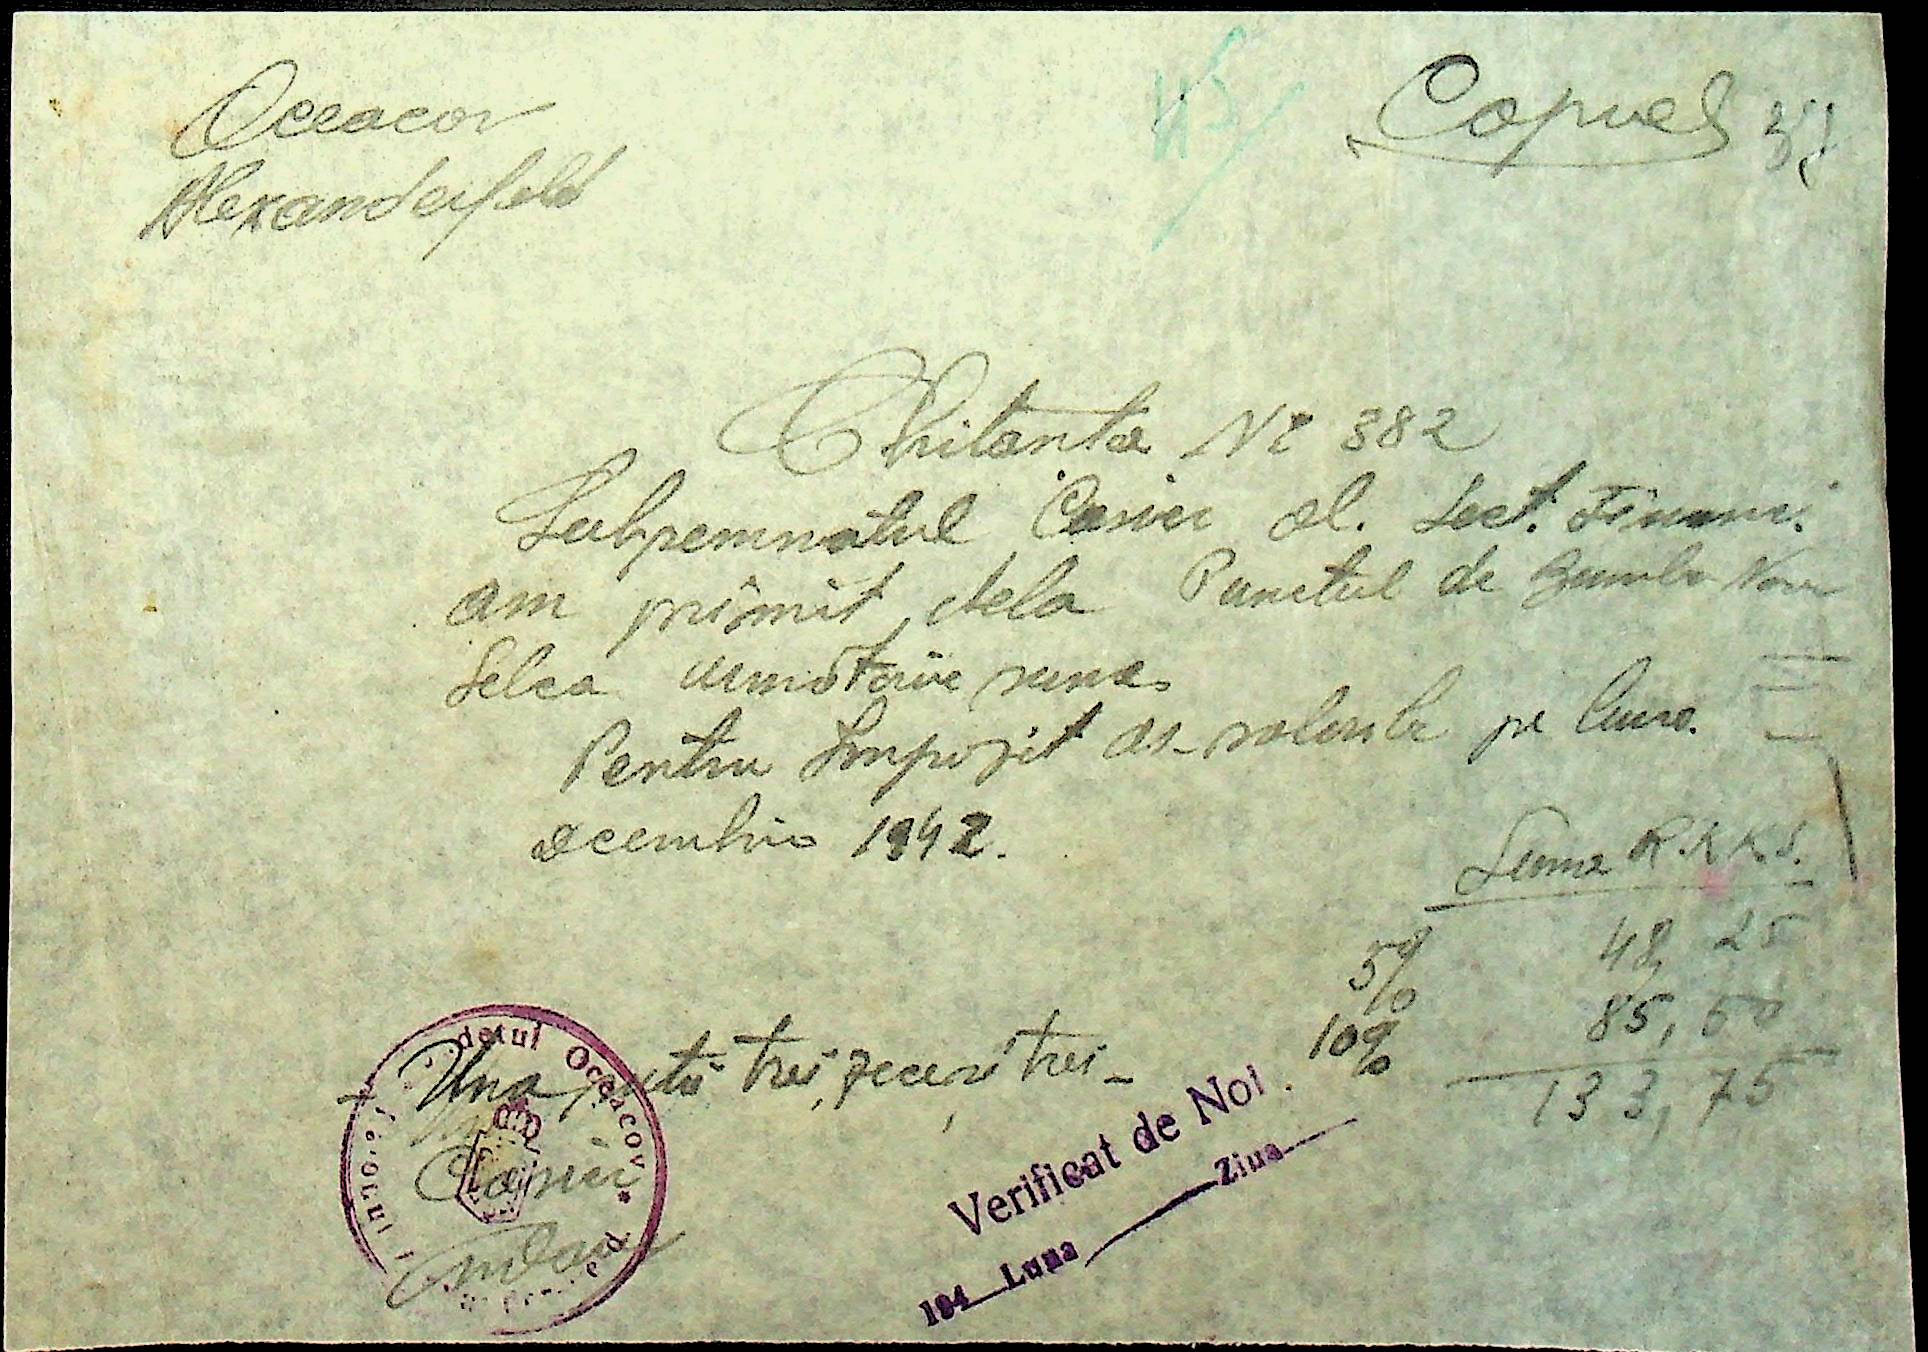 Oceacov
Alexanderfeld
Copie
Chitanta No 382
Subpemnatul Casier al. Sect. Financi.
am primit dela Punctul de
Selca urmatoare suma
Pentru Impozit as_ pe luna
decembrie 1942.
Suma R.K.K.S.
5% 48, 25
10% 85, 50
133, 75
Una suta trei zeci si trei_
Casier
detul Oceacov *
Verificat de Noi
194 Luna Ziua